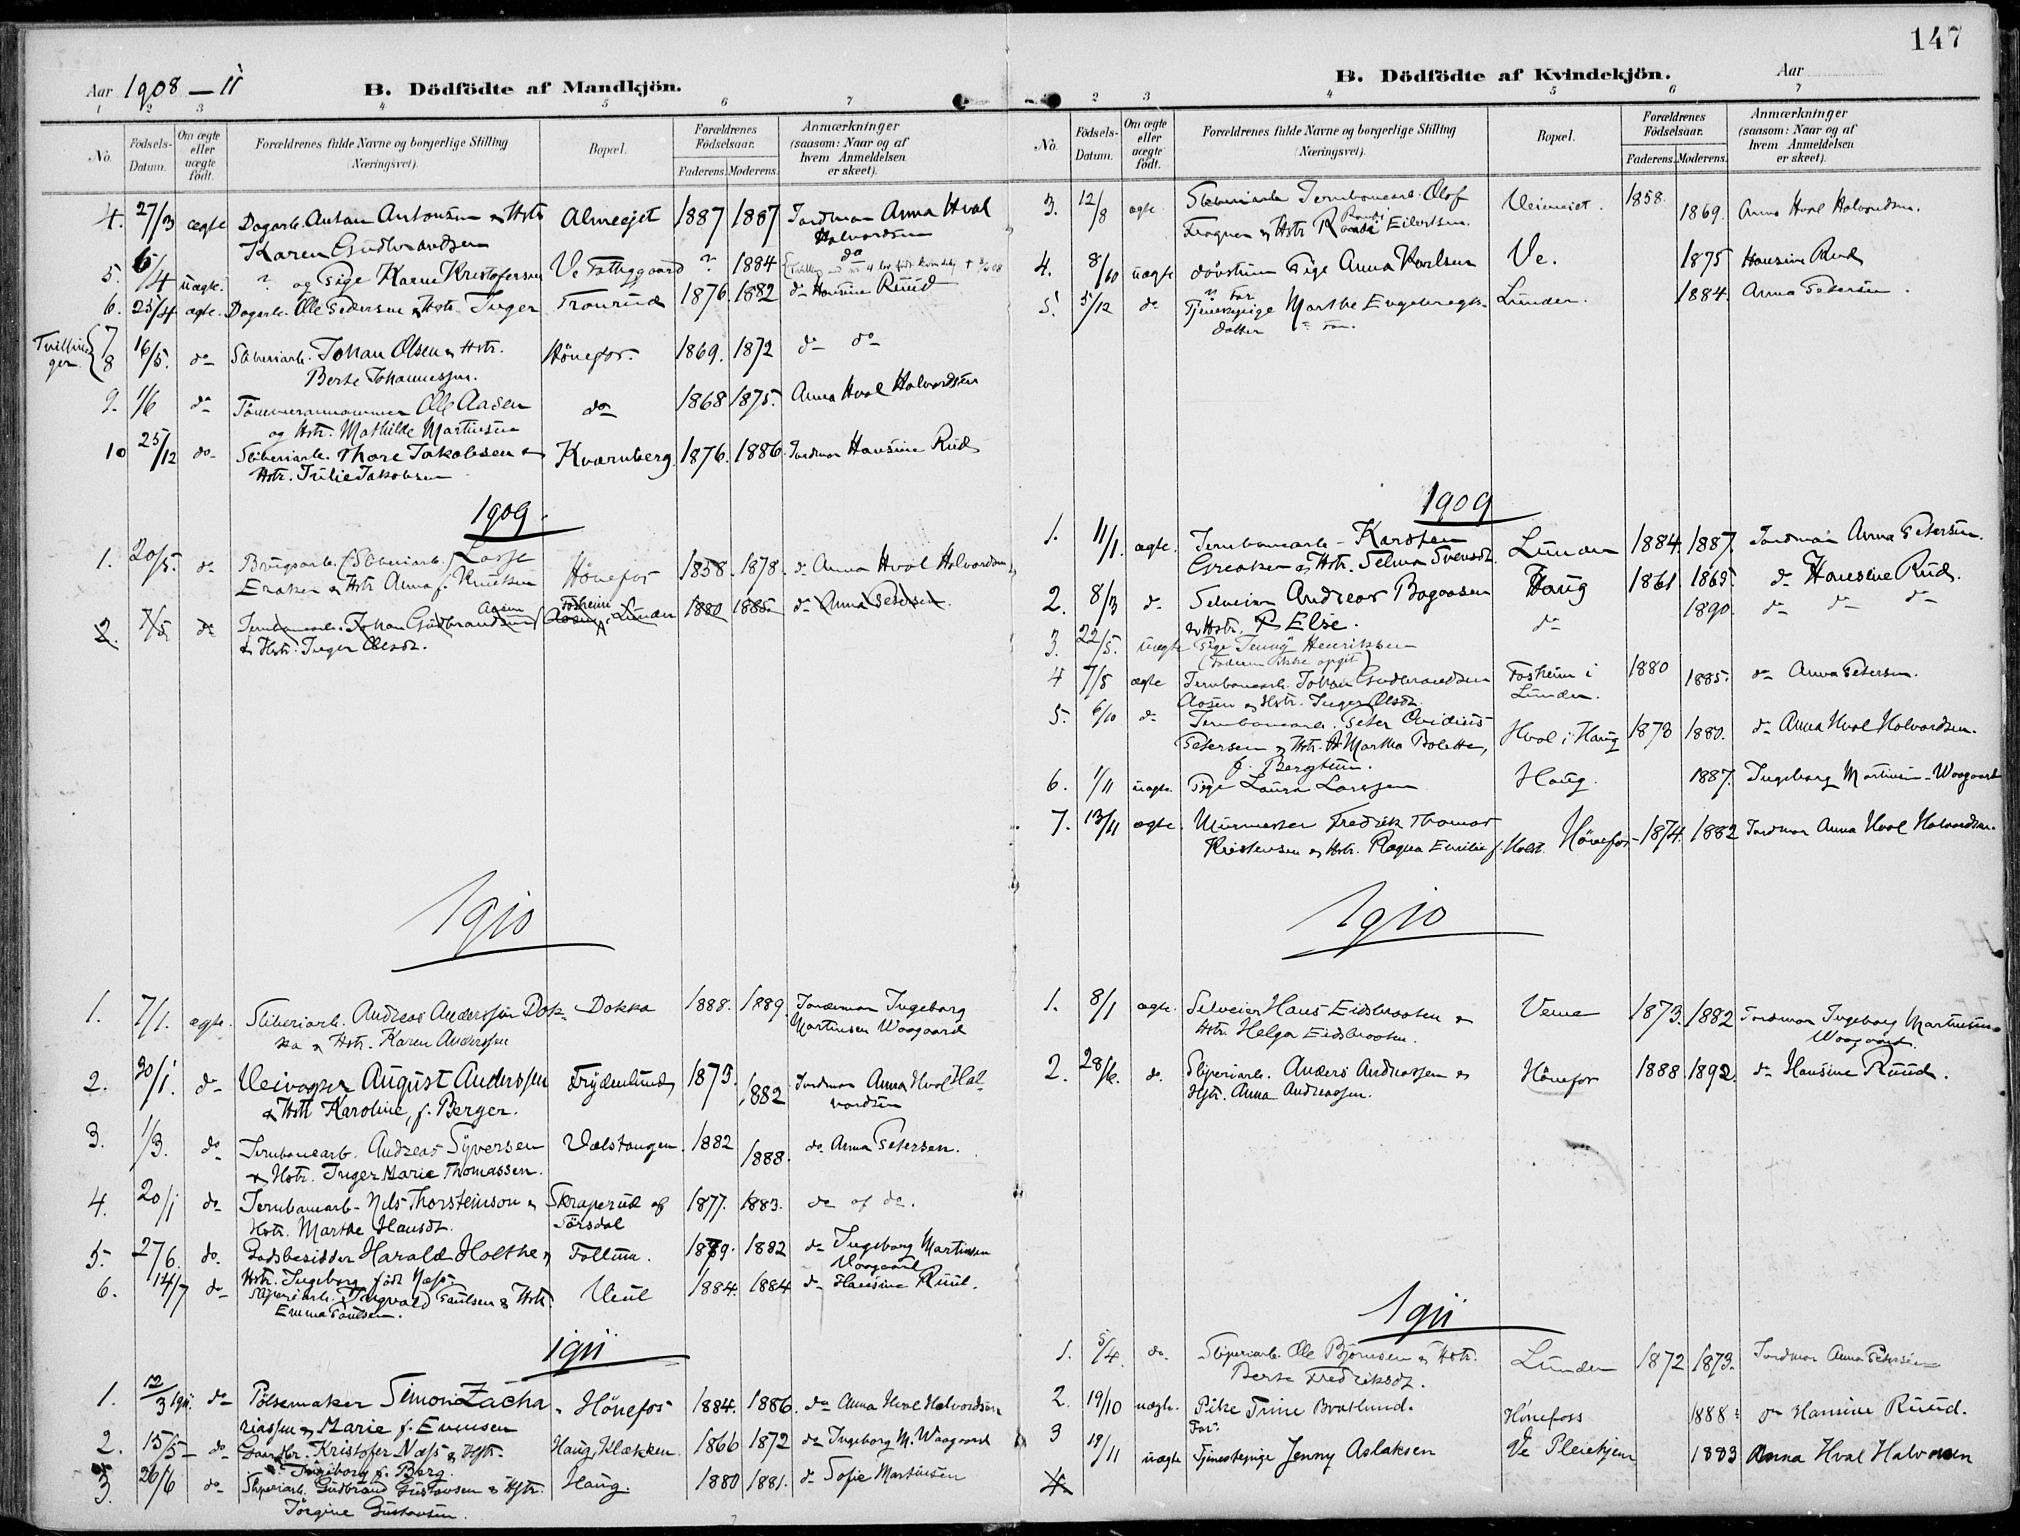 147
Aar 1908 – 11
B. Dödfödte af Mandkjön.
1 2 3 4 5 6 7
No.
Födsels-Datum.
Om ægte eller uægte födt.
Forældrenes fulde Navne og borgerlige Stilling (Næringsvei).
Bopæl.
Forældrenes Födselsaar.
Faderens. Moderens.
Anmærkninger (saasom: Naar og af hvem Anmeldelsen er skeet).
4. 27/3 ægte Dagarb. Antan Antonsen & Hstr Almeejet 1887 1887 Jordmor Anna Hval
Karen Gudbrandsen Halvordsen
5. 6/4 uægte. ? og Pige Karen Kristofersen Ve Fattiggaard ? 1884 do
6. 25/4 ægte. Dagarb. Olle Pedersen & Hstr. Inger Tronrud 1876 1882 do Hansine Ruud
Tvillinger { 7 8 16/5. do Sliberiarb. Johan Olsen & Hstr. Hönefos. 1869. 1872 do do
Berte Johannessen.
9. 1/6 do Tömmermannen Olle Aasen do 1868 1875. Anna Hval Halvordsen
og Hstr. Mathilde Martinsen
10 25/12 do Sliberiarb. Thore Jakobsen & Kværnberg. 1876. 1886 Jordmor Hansine Rud
Hstr. Julie Jakobsen
1909.
1. 20/5. do Brugsarb. (Sliberiarb.) Lasse Hönefos 1858. 1878. do Anna Hval Halvordsen
Eraker & Hstr Anna f. Knutsen
2. 7/5. do Jernbanearb. Johan Gudbrandsen Aasen Fosheim i Lunder 1880 1885. do Anna Petersen.
& Hstr. Inger Olsdt.
1910
1. 7/1. ægte. Sliberiarb. Andreas Anderssen Dok- Dokka 1888. 1889. Jordmor Ingeborg
ka & Hstr. Karen Anderssen Martinsen Waagaard
2. 30/1. do Veivogter August Anderssen Frydenlund, 1873. 1882 Jordmor Anna Hval Hal-
& Hstr Karoline, f. Berger. vordsen
3. 1/3. do Jernbanearb. Andreas Syversen Vælstangen. 1882 1888. do Anna Petersen.
& Hstr. Inger Marie Thomassen.
4. 20/1 do Jernbanearb. Nils Thorsteinson & Skraperud af 1877. 1883. do af do.
Hstr. Marthe Hansdt. Sörsdal
5. 27/6. do. Godsbesidder Harald Holthe & Follum. 1879. 1882 do Ingeborg Martinsen
Hstr. Ingeborg född Næss Waagaard
6. 14/7 do Sliperiarb. Dagvald Paulsen & Hstr Veul 1884. 1884 do Hansine Ruud.
Emma Paulsen.
1911
1. 12/3 1911. do Pölsemaker Simon Zacha- Hönefos 1884. 1886. do Anna Hval Halvordsen
riassen & Marie f. Evensen
2. 15/5 do Gaardbr. Kristofer Næss & Hstr. Haug, Klækken 1866 1872 do Ingeborg M. Waagaard
Ingeborg f. Berg.
3. 26/6 do Sliperiarb. Gudbrand Gustavsen & Hstr. Haug. 1880 1881. do Sofie Martinsen
Jörgine Gustavsen.
B. Dödfödte af Kvindekjön.
Aar
2 3 4 5 6 7
No.
Födsels-Datum.
Om ægte eller uægte födt.
Forældrenes fulde Navne og borgerlige Stilling (Næringsvei).
Bopæl.
Forældrenes Födselsaar.
Faderens. Moderens.
Anmærkninger (saasom: Naar og af hvem Anmeldelsen er skeet).
3. 12/8 ægte Jernbanearb. Olof Veimeiet. 1858. 1869. Anna Hval Halvordsen.
Fragner & Hstr Eilertsen
4. 8/10 uægte dövstum Pige Anna Karlsen Ve. 1875 Hansine Rud
5. 5/12 do Tjenestepige Marthe Engebregts- Lunder. 1884. Anna Petersen.
datter
1909
1. 11/1. ægte. Jernbanearb. Karsten Lunder 1884. 1887. Jordmor Anna Petersen.
Greaker & Hstr. Selma Svensdt.
2. 8/3 do Selveier Andreas Bagaasen Haug 1861 1865. do Hansine Rud.
& Hstr. Else.
3. 22/5. uægte Pige Jenny Henriksen do 1890. do do do
(Faderen ikke opgit)
4 7/5 ægte Jernbanearb. Johan Gudbrandsen Fosheim i 1880 1885. do Anna Petersen.
Aasen & Hstr. Inger Olsdt. Lunder.
5. 6/10 do Jernbanearb. Peter Ovidius Hval i Haug 1873 1880. do Anna Hval Halvordsen.
Petersen & Hstr. Martha Bolette,
f. Bergtun.
6. 1/11 uægte. Pige Laura Larssen Haug. 1887. Ingeborg Martinsen-Waagaard
7. 13/11 ægte. Murmester Fredrik Thomas
Kristensen & Hstr. Ragna Emilie f. Holst. Hönefos 1874. 1882 Jordmor Anna Hval Halvordsen.
1910
1. 8/1 ægte. Selveier Hans Eidsbraaten & Veme 1873. 1882 Jordmor Ingeborg Martinsen
Hstr. Helga Eidsbraaten. Waagaard.
2. 28/6. do. Sliperiarb. Anders Andreassen & Hönefos 1888 1892. do Hansine Ruud.
Hstr. Anna Andreassen.
1911
1. 5/4. do. Sliperiarb. Ole Björnsen & Hstr. Lunder 1872 1873. Jordmor Anna Petersen
Berte Fredriksdt.
2. 19/10 uægte. Pike Trine Bratlund. Hönefoss 1888. do Hansine Ruud.
Far:
3 19/11 uægte Tjenestepige Jenny Aslaksen Ve Pleiehjem 1883 Anna Hval Halvorsen